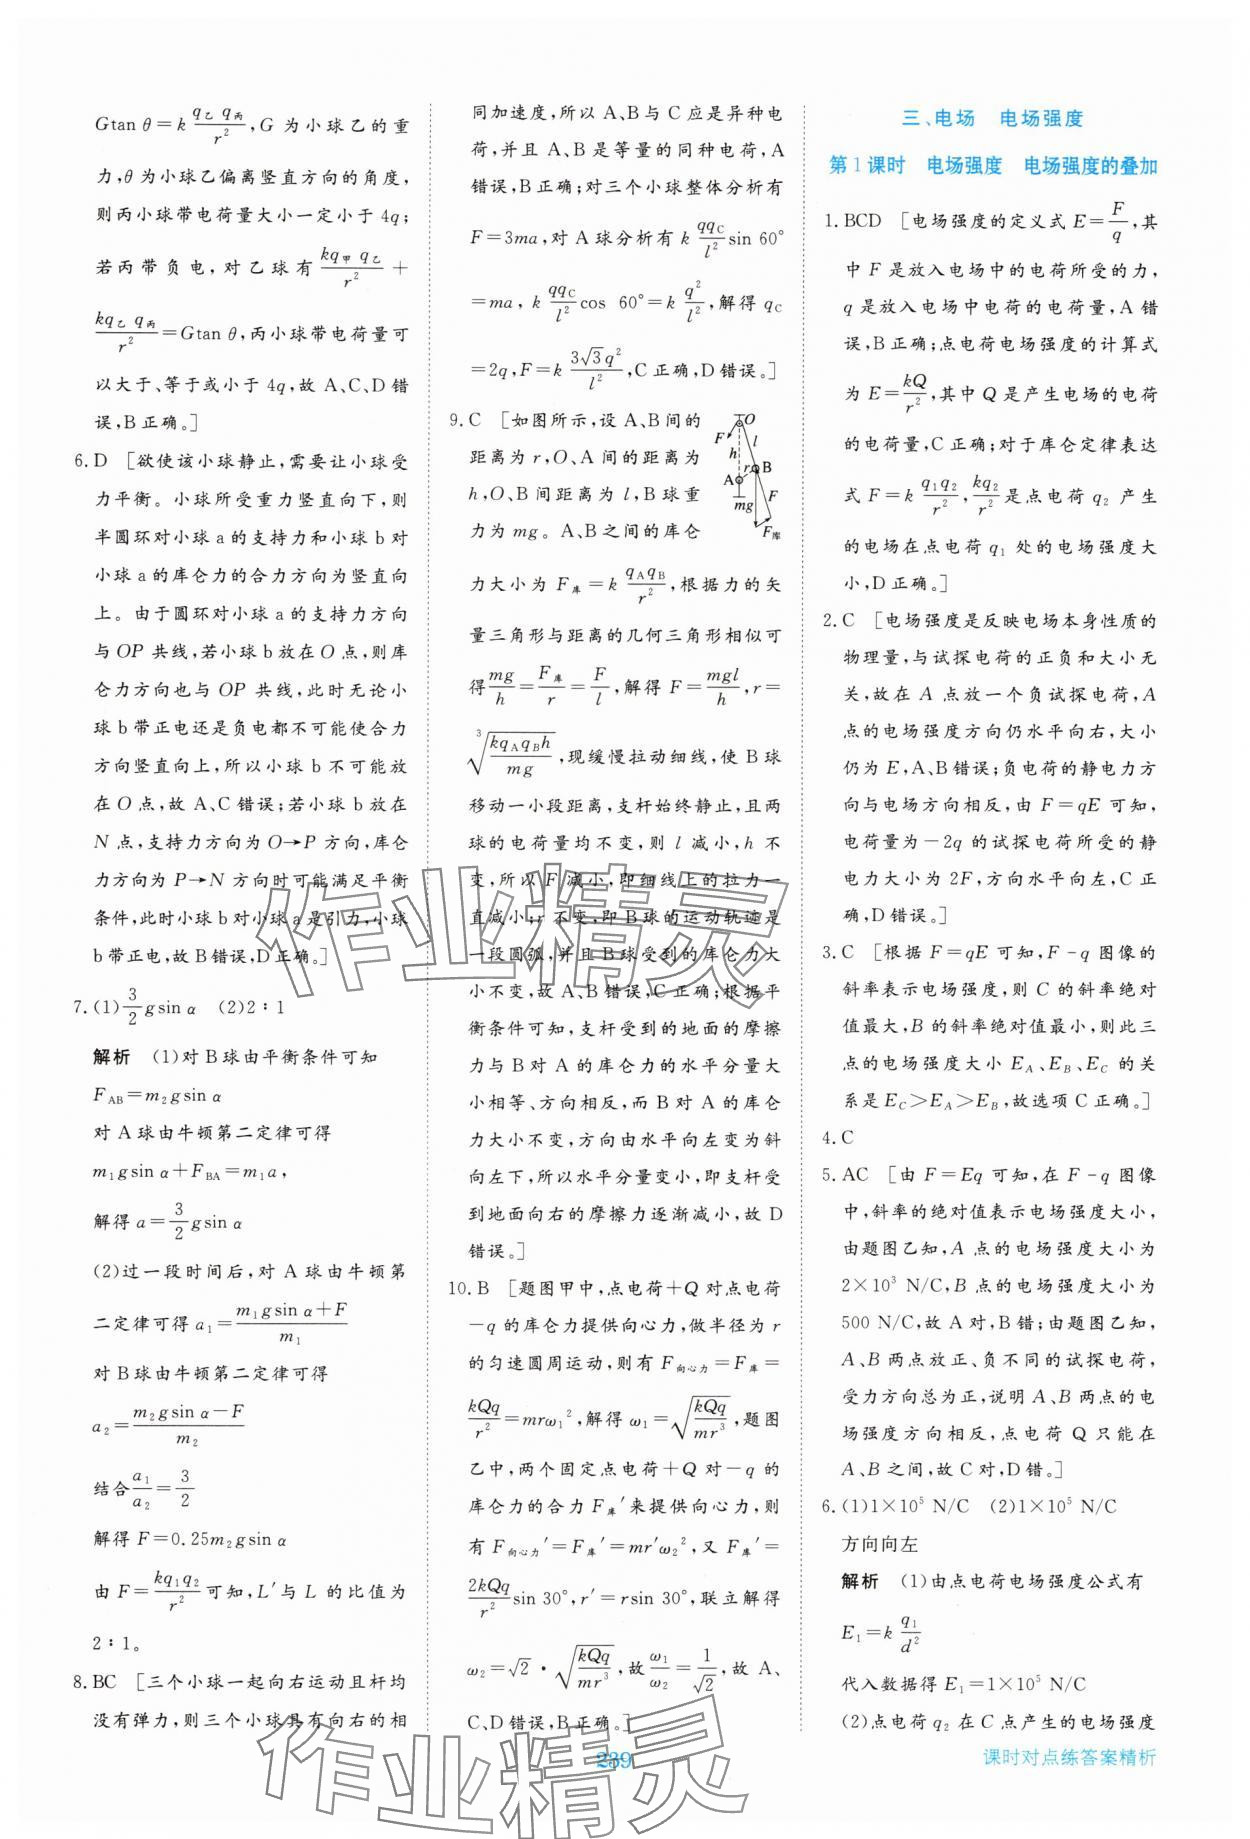 Gtan θ=k q乙 q丙/r²,G 为小球乙的重
力,θ为小球乙偏离竖直方向的角度,
则丙小球带电荷量大小一定小于 4q;
若丙带负电,对乙球有 kq甲 q乙/r² +
kq乙 q丙/r²=Gtan θ,丙小球带电荷量可
以大于、等于或小于 4q,故 A、C、D 错
误,B 正确。]
6. D [欲使该小球静止,需要让小球受
力平衡。小球所受重力竖直向下,则
半圆环对小球 a 的支持力和小球 b 对
小球 a 的库仑力的合力方向为竖直向
上。由于圆环对小球 a 的支持力方向
与 OP 共线,若小球 b 放在 O 点,则库
仑力方向也与 OP 共线,此时无论小
球 b 带正电还是负电都不可能使合力
方向竖直向上,所以小球 b 不可能放
在 O 点,故 A、C 错误;若小球 b 放在
N 点,支持力方向为 O→P 方向,库仑
力方向为 P→N 方向时可能满足平衡
条件,此时小球 b 对小球 a 是引力,小球
b 带正电,故 B 错误,D 正确。]
7. (1) 3/2 gsin α (2)2∶1
解析 (1)对 B 球由平衡条件可知
F_AB=m₂gsin α
对 A 球由牛顿第二定律可得
m₁gsin α+F_BA=m₁a,
解得 a=3/2 gsin α
(2)过一段时间后,对 A 球由牛顿第
二定律可得 a₁=(m₁gsin α+F)/m₁
对 B 球由牛顿第二定律可得
a₂=(m₂gsin α-F)/m₂
结合 a₁/a₂=3/2
解得 F=0.25m₂gsin α
由 F=kq₁q₂/r² 可知,L′与 L 的比值为
2∶1。
8. BC [三个小球一起向右运动且杆均
没有弹力,则三个小球具有向右的相
同加速度,所以 A、B 与 C 应是异种电
荷,并且 A、B 是等量的同种电荷,A
错误,B 正确;对三个小球整体分析有
F=3ma,对 A 球分析有 k qq_C/l² sin 60°
=ma,k qq_C/l² cos 60°=k q²/l²,解得 q_C
=2q,F=k 3√3q²/l²,C 正确,D 错误。]
9. C [如图所示,设 A、B 间的
距离为 r,O、A 间的距离为
h,O、B 间距离为 l,B 球重
力为 mg。A、B 之间的库仑
O
F
l
h
r
B
A
F
mg
F库
力大小为 F库=k q_A q_B/r²,根据力的矢
量三角形与距离的几何三角形相似可
得 mg/h=F库/r=F/l,解得 F=mgl/h,r=
³√(kq_A q_B h/mg),现缓慢拉动细线,使 B 球
移动一小段距离,支杆始终静止,且两
球的电荷量均不变,则 l 减小,h 不
变,所以 F 减小,即细线上的拉力一
直减小;r 不变,即 B 球的运动轨迹是
一段圆弧,并且 B 球受到的库仑力大
小不变,故 A、B 错误,C 正确;根据平
衡条件可知,支杆受到的地面的摩擦
力与 B 对 A 的库仑力的水平分量大
小相等、方向相反,而 B 对 A 的库仑
力大小不变,方向由水平向左变为斜
向左下,所以水平分量变小,即支杆受
到地面向右的摩擦力逐渐减小,故 D
错误。]
10. B [题图甲中,点电荷+Q 对点电荷
-q 的库仑力提供向心力,做半径为 r
的匀速圆周运动,则有 F向心力=F库=
kQq/r²=mrω₁²,解得 ω₁=√(kQq/mr³),题图
乙中,两个固定点电荷+Q 对-q 的
库仑力的合力 F库′来提供向心力,则
有 F向心力′=F库′=mr′ω₂²,又 F库′=
2kQq/r² sin 30°,r′=rsin 30°,联立解得
ω₂=√2·√(kQq/mr³),故 ω₁/ω₂=1/√2,故 A、
C、D 错误,B 正确。]
三、电场 电场强度
第 1 课时 电场强度 电场强度的叠加
1. BCD [电场强度的定义式 E=F/q,其
中 F 是放入电场中的电荷所受的力,
q 是放入电场中电荷的电荷量,A 错
误,B 正确;点电荷电场强度的计算式
为 E=kQ/r²,其中 Q 是产生电场的电荷
的电荷量,C 正确;对于库仑定律表达
式 F=k q₁q₂/r²,kq₂/r² 是点电荷 q₂ 产生
的电场在点电荷 q₁ 处的电场强度大
小,D 正确。]
2. C [电场强度是反映电场本身性质的
物理量,与试探电荷的正负和大小无
关,故在 A 点放一个负试探电荷,A
点的电场强度方向仍水平向右,大小
仍为 E,A、B 错误;负电荷的静电力方
向与电场方向相反,由 F=qE 可知,
电荷量为-2q 的试探电荷所受的静
电力大小为 2F,方向水平向左,C 正
确,D 错误。]
3. C [根据 F=qE 可知,F-q 图像的
斜率表示电场强度,则 C 的斜率绝对
值最大,B 的斜率绝对值最小,则此三
点的电场强度大小 E_A、E_B、E_C 的关
系是 E_C>E_A>E_B,故选项 C 正确。]
4. C
5. AC [由 F=Eq 可知,在 F-q 图像
中,斜率的绝对值表示电场强度大小,
由题图乙知,A 点的电场强度大小为
2×10³ N/C,B 点的电场强度大小为
500 N/C,故 A 对,B 错;由题图乙知,
A、B 两点放正、负不同的试探电荷,
受力方向总为正,说明 A、B 两点的电
场强度方向相反,点电荷 Q 只能在
A、B 之间,故 C 对,D 错。]
6. (1)1×10⁵ N/C (2)1×10⁵ N/C
方向向左
解析 (1)由点电荷电场强度公式有
E₁=k q₁/d²
代入数据得 E₁=1×10⁵ N/C
(2)点电荷 q₂ 在 C 点产生的电场强度
239
课时对点练答案精析
作业精灵
作业精灵